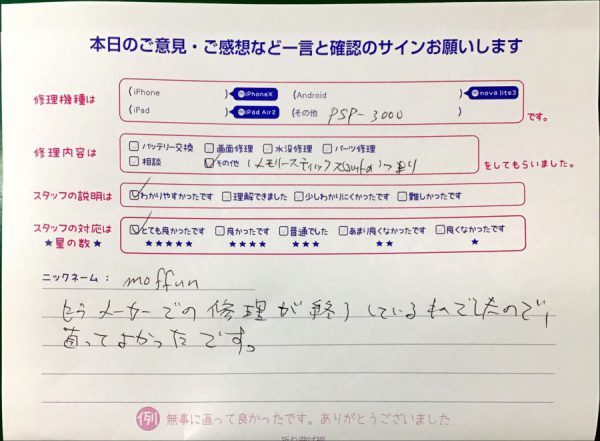 本日のご意見・ご感想など一言と確認のサインお願いします
修理機種は
(iPhone ) 例iPhoneX (Android ) 例nova lite3
(iPad ) 例iPad Air2 (その他 PSP-3000 ) です。
修理内容は
バッテリー交換 画面修理 水没修理 パーツ修理
相談 その他 (メモリースティックスロットの
をしてもらいました。
スタッフの説明は わかりやすかったです 理解できました 少しわかりにくかったです 難しかったです
スタッフの対応は とても良かったです 良かったです 普通でした あまり良くなかったです 良くなかったです
★星の数★ ★★★★★ ★★★★ ★★★ ★★ ★
ニックネーム: moffun
もうメーカーでの修理が終了しているものでしたので、
直ってよかったです。
例 無事に直って良かったです。ありがとうございました